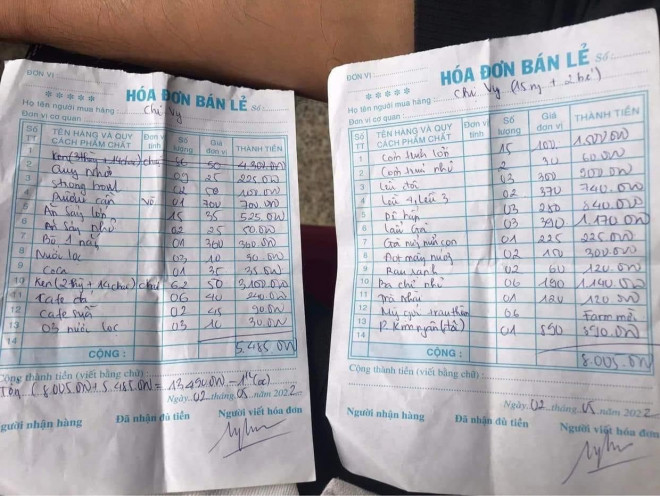 ĐƠN VỊ :
HÓA ĐƠN BÁN LẺ Số :
Họ tên người mua hàng : Chị Vy
Đơn vị cơ quan :
Số TT TÊN HÀNG VÀ QUY CÁCH PHẨM CHẤT Đơn vị tính Số lượng Giá đơn vị THÀNH TIỀN
1 50
2 09 25 225.000
3 strong bowl 02 50 100.000
4 01 700 700.000
5 Ăn sáng lớn 15 35 525.000
6 Ăn sáng nhỏ 02 25 50.000
7 Bò 1 nắng 01 360 360.000
8 Nước lọc 03 10 30.000
9 Coca 01 35 35.000
10 Ken (2 thg + 14 chai) chai 62 50 3.100.000
11 Cafe đá 06 40 240.000
12 Cafe sữa 02 45 90.000
13 03 nước lọc 03 10 30.000
14
CỘNG : 5.485.000
Cộng thành tiền (viết bằng chữ) :
8.005.000 + 5.485.000 = 13.490.000
Ngày 02 tháng 05 năm 2022
Người nhận hàng Đã nhận đủ tiền Người viết hóa đơn
ĐƠN VỊ :
HÓA ĐƠN BÁN LẺ Số :
Họ tên người mua hàng : Chị Vy (15 ng + 2 bé)
Đơn vị cơ quan :
Số TT TÊN HÀNG VÀ QUY CÁCH PHẨM CHẤT Đơn vị tính Số lượng Giá đơn vị THÀNH TIỀN
1 Cơm trưa lớn 15 100
2 Cơm trưa nhỏ 2 30 60.000
3 Lều đôi 03 300 900.000
4 Lều 4, lều 3 02 370 740.000
5 03 280 840.000
6 Lẩu gà 03 390 1.170.000
7 01 225 225.000
8 02 150 300.000
9 Rau xanh 02 60 120.000
10 Ba chỉ nhỏ 06 190 1.140.000
11 01 120 120.000
12 06
13 01 390 390.000
14
CỘNG : 8.005.000
Cộng thành tiền (viết bằng chữ) :
Ngày 02 tháng 05 năm 2022
Người nhận hàng Đã nhận đủ tiền Người viết hóa đơn